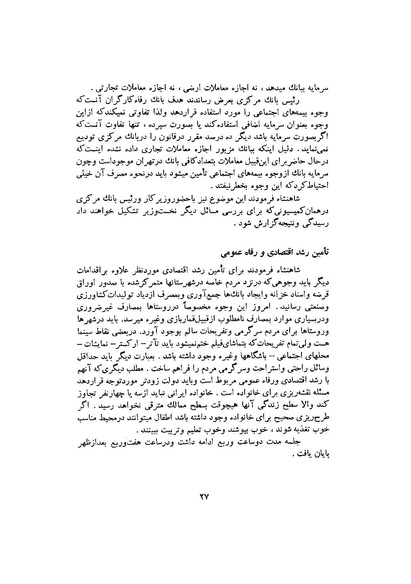 سرمایه ببانك میدهد ، نه اجازه معاملات ارضی ، نه اجازه معاملات تجارتی .
رئیس بانك مرکزی بعرض رساندند هدف بانك رفاه‌کارگران آنست‌که
وجوه بیمه‌های اجتماعی را مورد استفاده قراردهد ولذا تفاوتی نمیکندکه ازاین
وجوه بعنوان سرمایه اضافی استفاده‌کند یا بصورت سپرده ، تنها تفاوت آنست‌که
اگربصورت سرمایه باشد دیگر ده درصد مقرر درقانون را دربانك مرکزی تودیع
نمی‌نماید . دلیل اینکه ببانك مزبور اجازه معاملات تجاری داده نشده اینست‌که
درحال حاضربرای این‌قبیل معاملات بتعدادکافی بانك درتهران موجوداست وچون
سرمایه بانك ازوجوه بیمه‌های اجتماعی تأمین میشود باید درنحوه مصرف آن خیلی
احتیاط‌کردکه این وجوه بخطرنیفتد .
شاهنشاه فرمودند این موضوع نیز باحضوروزیرکار ورئیس بانك مرکزی
درهمان‌کمیسیونی‌که برای بررسی مسائل دیگر نخست‌وزیر تشکیل خواهند داد
رسیدگی ونتیجه‌گزارش شود .
تأمین رشد اقتصادی و رفاه عمومی
شاهنشاه فرمودند برای تأمین رشد اقتصادی موردنظر علاوه براقدامات
دیگر باید وجوهی‌که درنزد مردم خاصه درشهرستانها متمرکزشده با صدور اوراق
قرضه واسناد خزانه وایجاد بانك‌ها جمع‌آوری وبمصرف ازدیاد تولیدات‌کشاورزی
وصنعتی رسانید . امروز این وجوه مخصوصاً درروستاها بمصارف غیرضروری
ودربسیاری موارد بمصارف نامطلوب ازقبیل‌قماربازی وغیره میرسد. باید درشهرها
وروستاها برای مردم سرگرمی وتفریحات سالم بوجود آورد. دربعضی نقاط سینما
هست ولی‌تمام تفریحات‌که بتماشای‌فیلم ختم‌نمیشود باید تآتر ـ ارکستر ـ نمایشات ـ
محلهای اجتماعی ـ باشگاهها وغیره وجود داشته باشد . بعبارت دیگر باید حداقل
وسائل راحتی واستراحت وسرگرمی مردم را فراهم ساخت . مطلب دیگری‌که آنهم
با رشد اقتصادی ورفاه عمومی مربوط است وباید دولت زودتر موردتوجه قراردهد
مسئله نقشه‌ریزی برای خانواده است . خانواده ایرانی نباید ازسه یا چهارنفر تجاوز
کند والا سطح زندگی آنها هیچوقت بسطح ممالك مترقی نخواهد رسید . اگر
طرح‌ریزی صحیح برای خانواده وجود داشته باشد اطفال میتوانند درمحیط مناسب
خوب تغذیه شوند ، خوب بپوشند وخوب تعلیم وتربیت ببینند .
جلسه مدت دوساعت وربع ادامه داشت ودرساعت هفت‌وربع بعدازظهر
پایان یافت .
۲۷